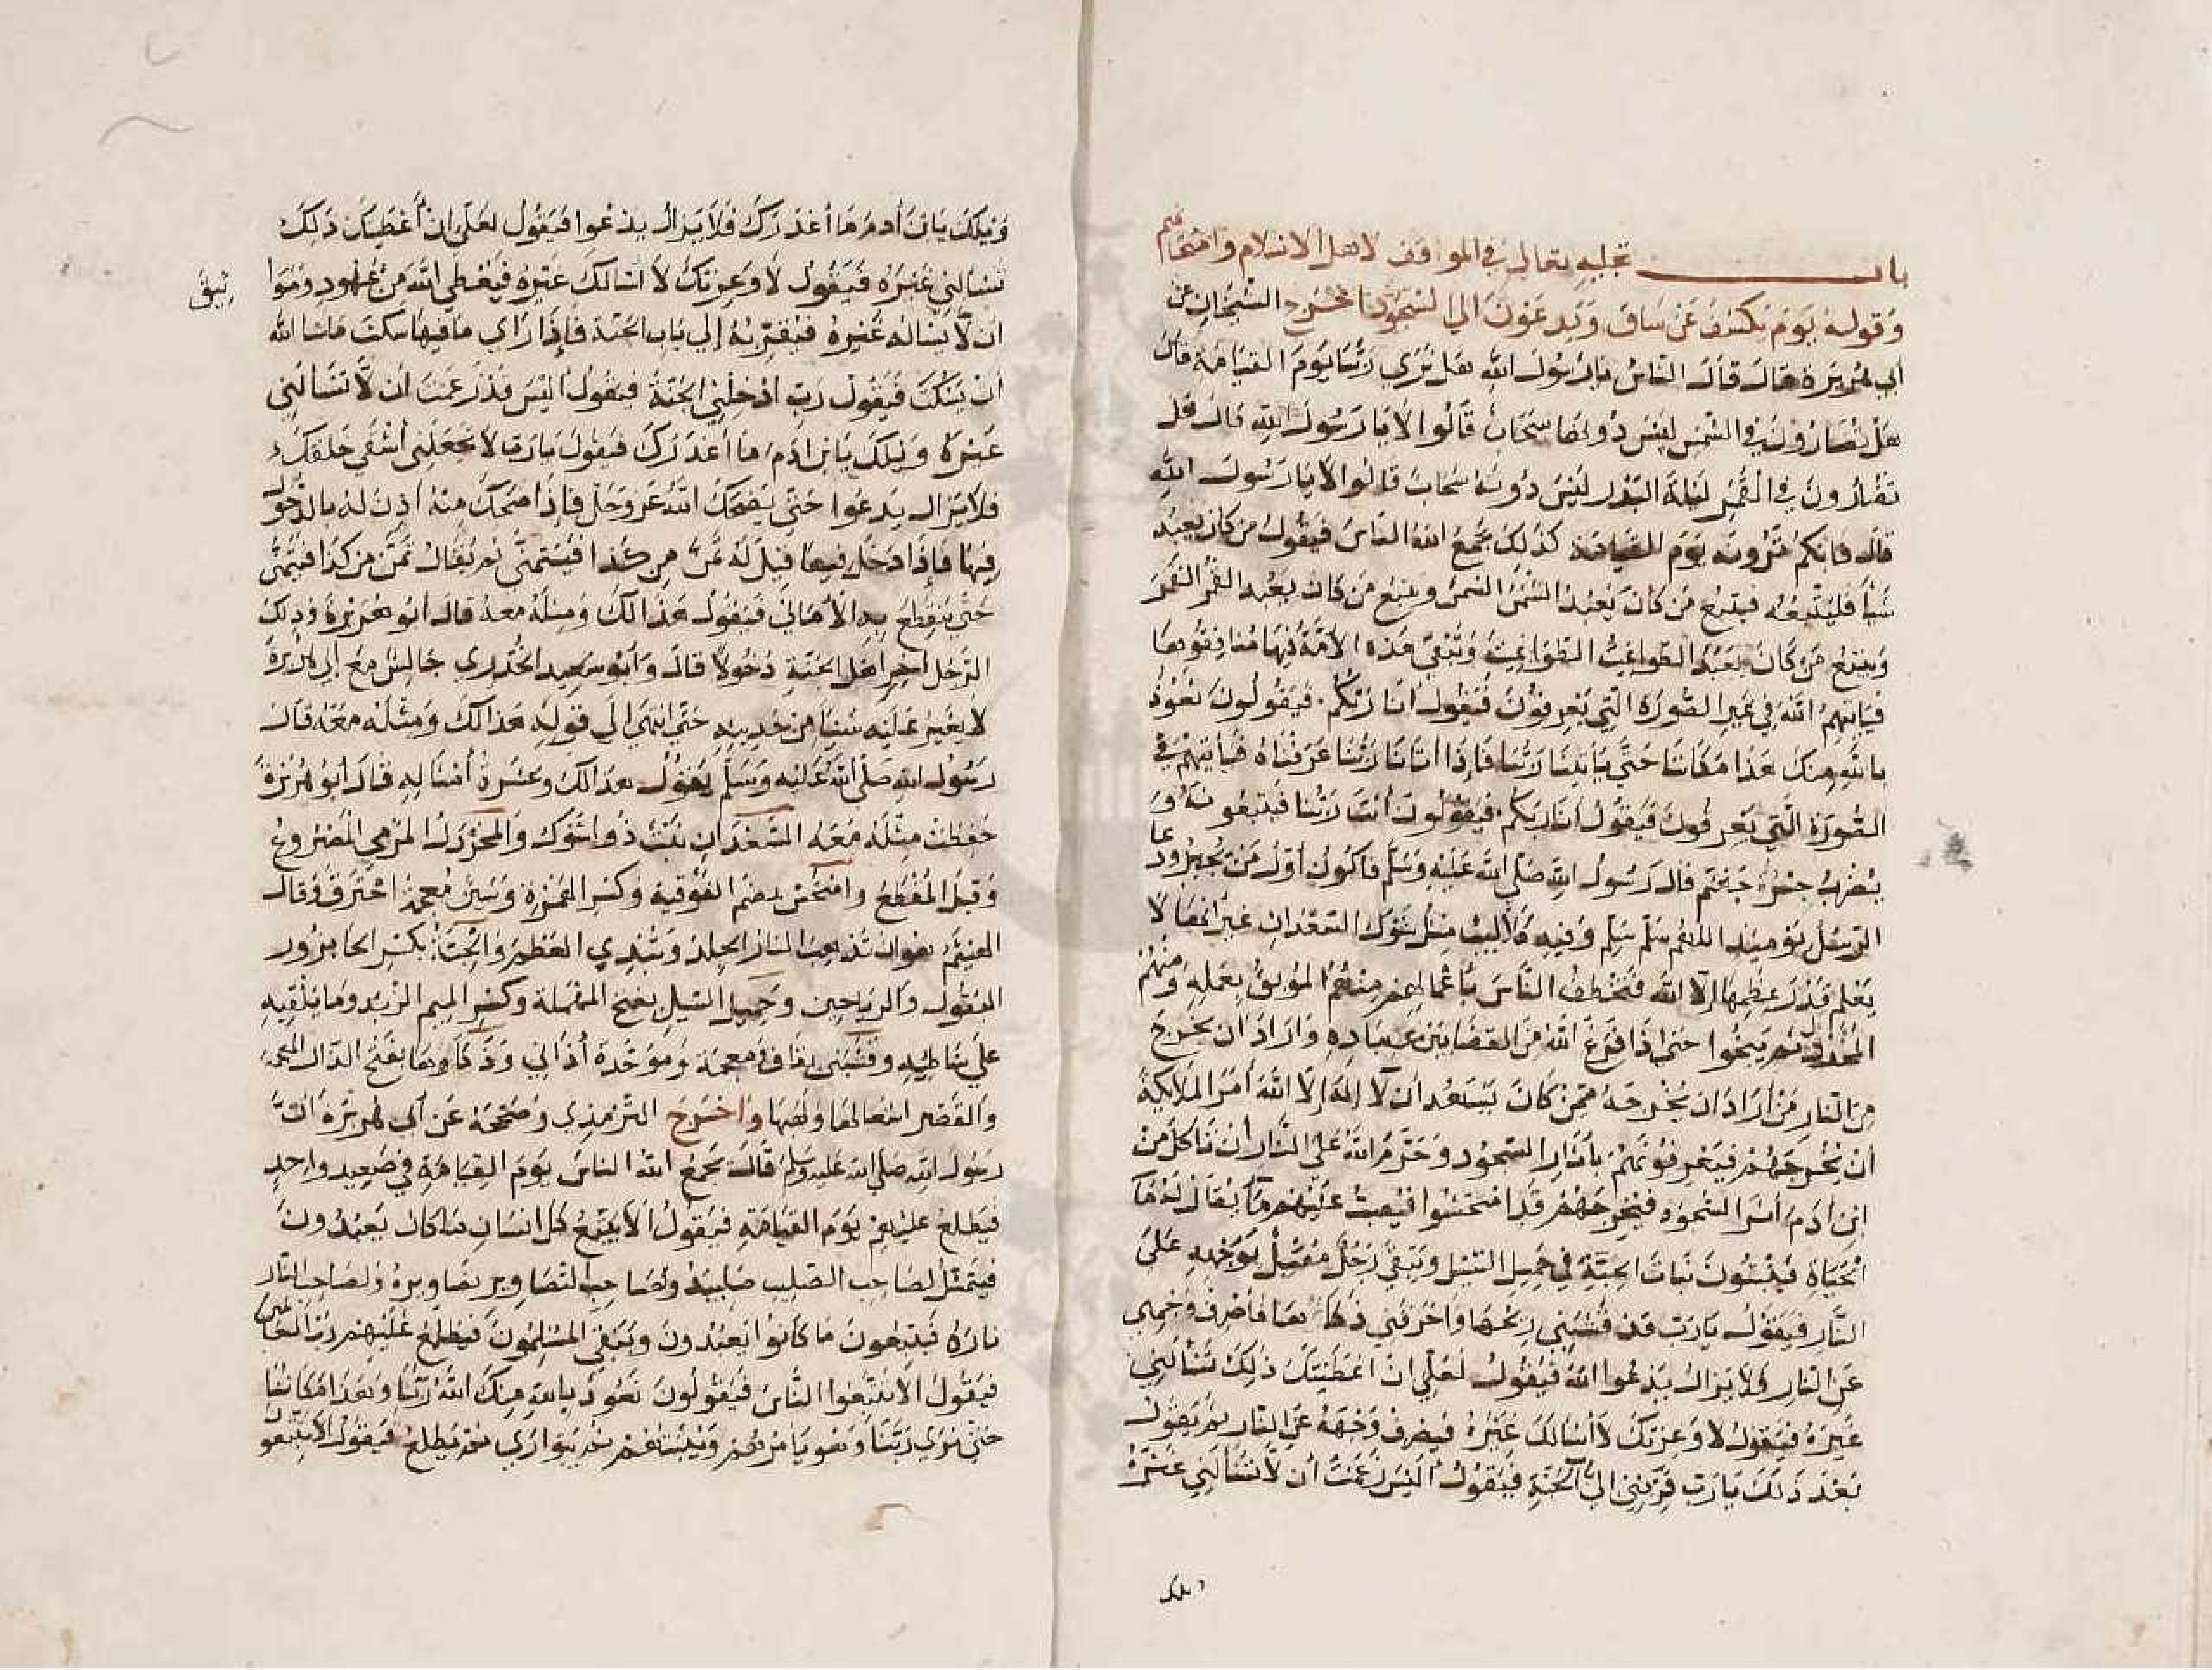 باب تجليه تعالى في الموقف لاهل الاسلام وامتحانهم
وقوله يوم يكشف عن ساق ويدعون الي السجود اخرج الشيخان عن
ابي هريرة قال قال الناس يا رسول الله هل نري ربنا يوم القيامة قال
هل تضارون في الشمس ليس دونها سحاب قالوا لا يا رسول الله قال هل
تضارون في القمر ليلة البدر ليس دونه سحاب قالوا لا يا رسول الله
قال فانكم ترونه يوم القيامة كذلك يجمع الله الناس فيقول من كان يعبد
شيأ فليتبعه فيتبع من كان يعبد الشمس الشمس ويتبع من كان يعبد القمر القمر
ويتبع من كان يعبد الطواغيت الطواغيت وتبقي هذه الامة فيها منافقوها
فياتيهم الله في غير الصورة التي يعرفون فيقول انا ربكم فيقولون نعوذ
بالله منك هذا مكاننا حتي يأتينا ربنا فاذا اتانا ربنا عرفناه فيأتيهم في
الصورة التي يعرفون فيقول انا ربكم فيقولون انت ربنا فيتبعونه و
يضرب جسر جهنم قال رسول الله صلي الله عليه وسلم فاكون اول من يجيز ودعا
الرسل يوميذ اللهم سلم سلم وفيه كلاليب مثل شوك السعدان غير انها لا
يعلم قدر عظمها الا الله فتخطف الناس باعمالهم منهم الموبق بعمله ومنهم
المخردل ثم ينجوا حتي اذا فرغ الله من القضا بين عباده واراد ان يخرج
من النار من اراد ان يخرجه ممن كان يشهد ان لا اله الا الله امر الملايكة
ان يخرجهم فيعرفونهم بأثار السجود وحرم الله علي النار ان تاكل من
ابن آدم اثر السجود فيخرجهم قد امتحشوا فيصب عليهم ما يقال له ما
الحياة فينبتون نبات الحبة في حميل السيل ويبقي رجل مقبل بوجهه علي
النار فيقول يا رب قد قشبني ريحها واحرقني ذكاها فاصرف وجهي
عن النار ولا يزال يدعوا الله فيقول لعلي ان اعطيتك ذلك تسألني
غيره فيقول لا وعزتك لا أسالك غيره فيصرف وجهه عن النار ثم يقول
بعد ذلك يا رب قربني الي باب الجنة فيقول اليس زعمت ان لا تسألني غيره
ويلك
ويلك يا بن أدم ما أغدرك فلا يزال يدعوا فيقول لعلي ان أعطيتك ذلك
تسألني غيره فيقول لا وعزتك لا اسالك غيره فيعطي الله من عهود ومواثيق
ان لا يساله غيره فيقربه إلي باب الجنة فإذا راي ما فيها سكت ما شا الله
أن يسكت فيقول رب ادخلني الجنة فيقول اليس قد زعمت ان لا تسألني
غيره ويلك يا بن ادم ما أغدرك فيقول يا رب لا تجعلني أشقي خلقك
فلا يزال يدعوا حتي يضحك الله عز وجل فاذا ضحك منه اذن له بالدخول
فيها فإذا دخل فيها قيل له تمن من كذا فيتمني ثم يقال تمن من كذا فيتمني
حتي تنقطع به الأماني فيقول هذا لك ومثله معه قال أبو هريرة وذلك
الرجل اخر اهل الجنة دخولا قال وأبو سعيد الخدري جالس مع أبي هريرة
لا يغير عليه شيئا من حديثه حتي انتهي الي قوله هذا لك ومثله معه قال
رسول الله صلي الله عليه وسلم يقول هذا لك وعشرة أمثاله قال أبو هريرة
حفظت مثله معه السعدان نبت ذو اشوك والمخردل المرمي المصروع
وقيل المقطع وامتحش بضم الفوقية وكسر الهمزة وشين معجمة احترق وقال
الهيثم هوان تذهب النار الجلد وتبدي العظم والحبة بكسر الحا بزور
البقول والرياحين وحميل السيل بفتح المهملة وكسر الميم الزبد وما يلقيه
علي شاطيه وقشبني بقاف ومعجمة وموحدة أذاني وذكاوها بفتح الذال المعجمة
والقصر اشعالها ولهبها واخرج الترمذي وصححه عن أبي هريرة ان
رسول الله صلي الله عليه وسلم قال يجمع الله الناس يوم القيامة في صعيد واحد
فيطلع عليهم يوم القيامة فيقول الا يتبع كل انسان ما كان يعبدون
فيتمثل لصاحب الصليب صليبه ولصاحب التصاوير تصاويره ولصاحب النار
ناره فيتبعون ما كانوا يعبدون ويبقي المسلمون فيطلع عليهم رب العالمين
فيقول الا تتبعوا الناس فيقولون نعوذ بالله منك الله ربنا وهذا مكاننا
حتي نري ربنا وهو يامرهم ويثبتهم ثم يتواري ثم يطلع فيقول الا تتبعو